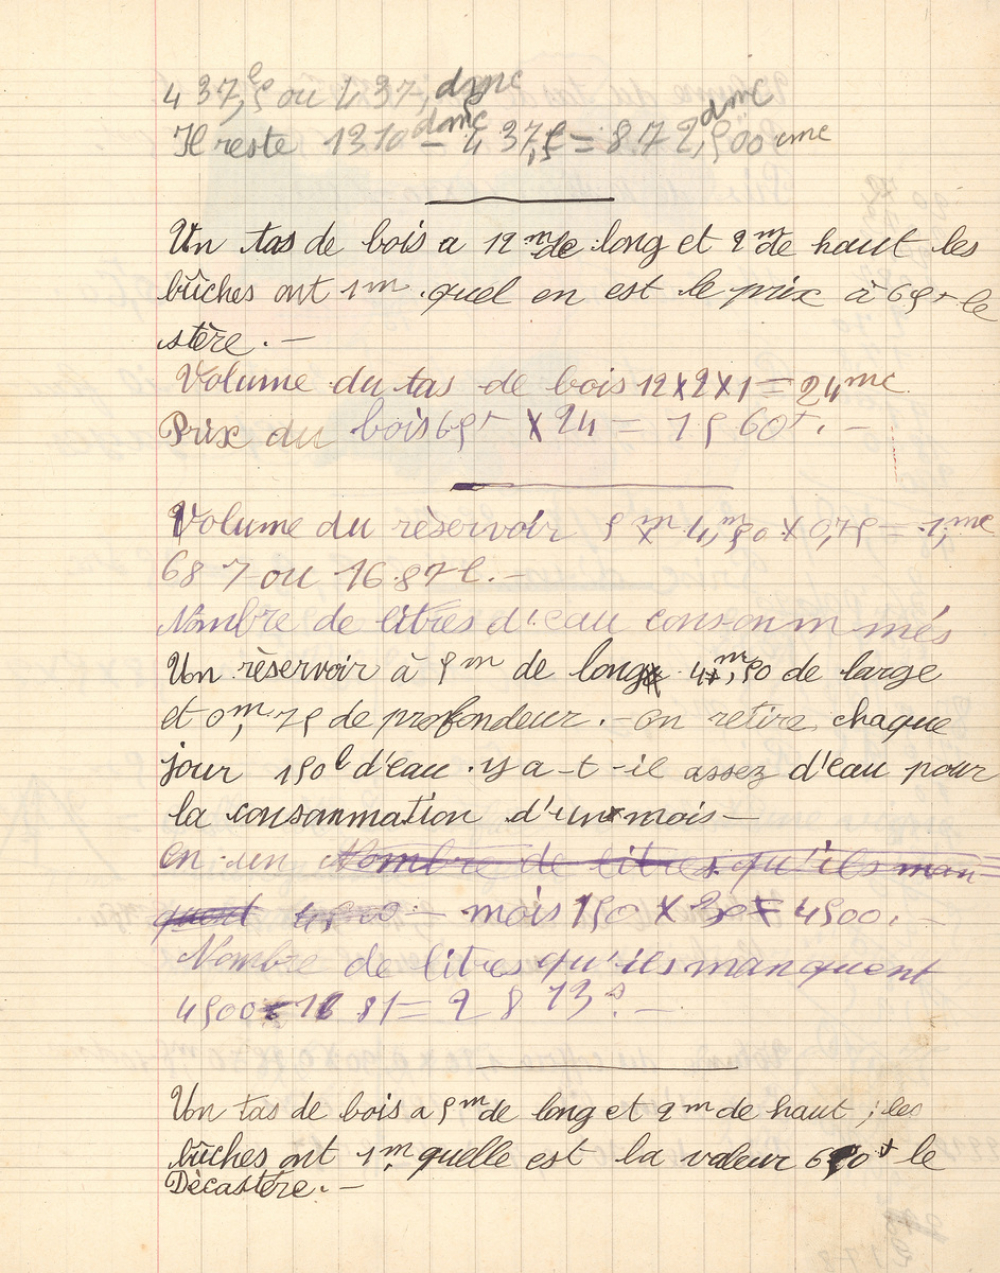 437,5 ou 437, dmc
Il reste 1310 dmc – 437,5 = 872,500 cmc dmc
Un tas de bois a 12 m de long et 2 m de haut les
bûches ont 1m quel en est le prix à 65f le
stère. —
Volume du tas de bois 12 X 2 X 1 = 24 mc
Prix du bois 65f X 24 = 1560f. —
Volume du rèservoir 5 m X 4,m50 X 0,75 = 1,mc
687 ou 1687 l. —
Nombre de litres d'eau consonmmés
Un rèservoir à 5m de long 4m,50 de large
et 0m,75 de profondeur. — on retire chaque
jour 150l d'eau . y a-t-il assez d'eau pour
la consommation d'un mois —
en un Nombre de litres qu'ils man-
quent 4500 — mois 150 X 30 = 4500. —
Nombre de litres qu'ils manquent
4500 - 1681 = 2813. —
Un tas de bois a 5m de long et 2 m de haut ; les
bûches ont 1m. quelle est la valeur 650f le
Dècastère. —